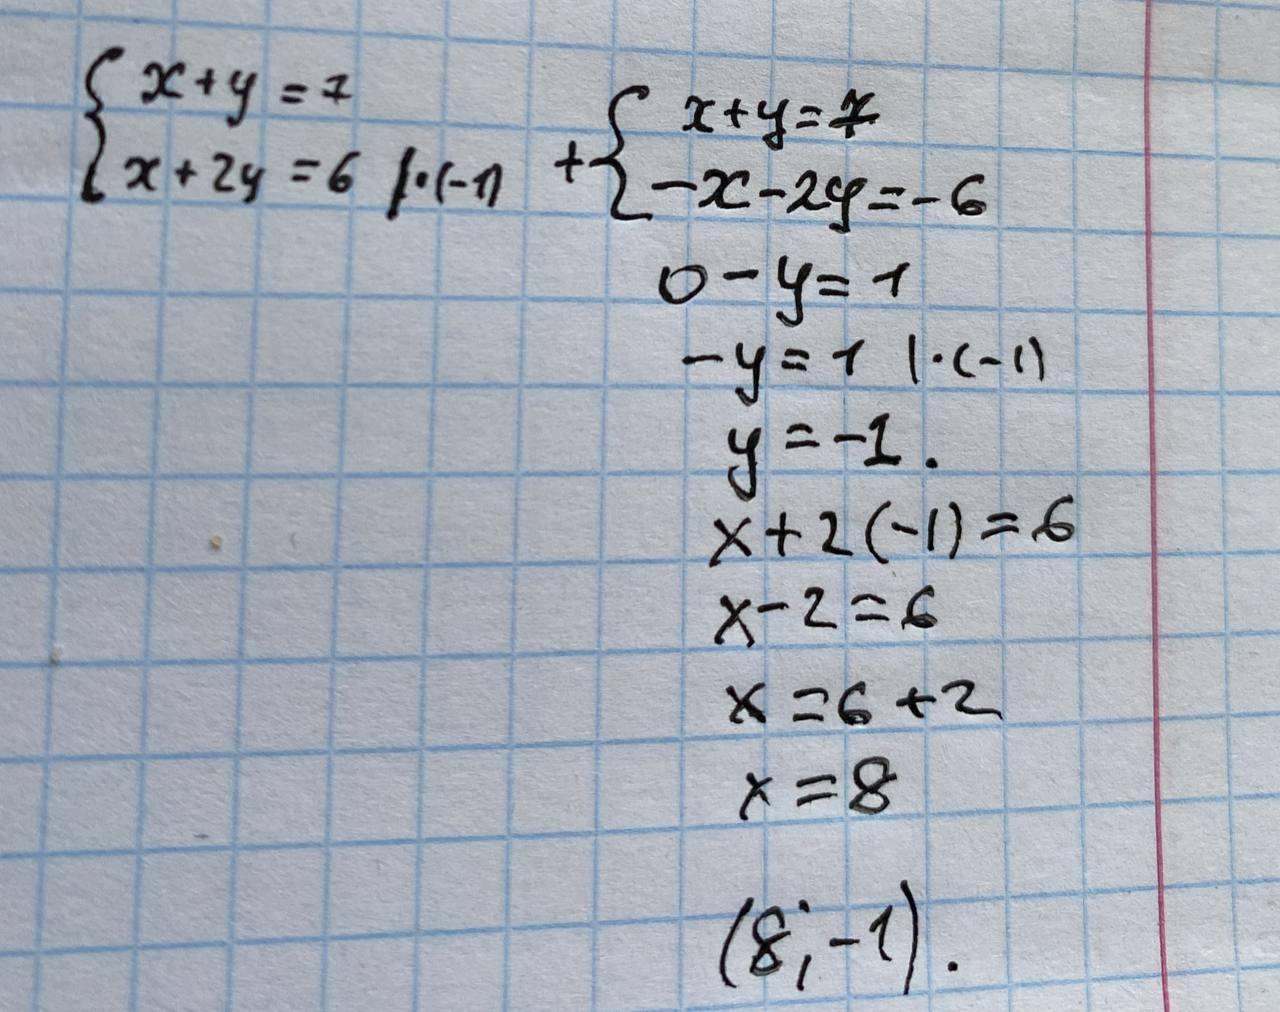 x+y=7
x+2y=6 |·(-1)
+ x+y=7
-x-2y=-6
0-y=1
-y=1 |·(-1)
y=-1.
x+2(-1)=6
x-2=6
x=6+2
x=8
(8;-1).